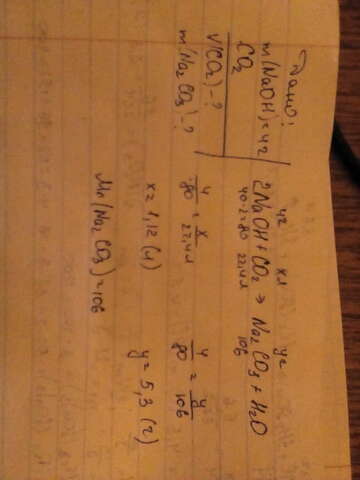 Дано:
m(NaOH)=4г
CO₂
V(CO₂)-?
m(Na₂CO₃)-?
4г xл yг
2NaOH+CO₂ → Na₂CO₃+H₂O
40·2=80 22,4л 106
4/80 = x/22,4л
x=1,12(л)
4/80 = y/106
y=5,3(г)
Mr(Na₂CO₃)=106